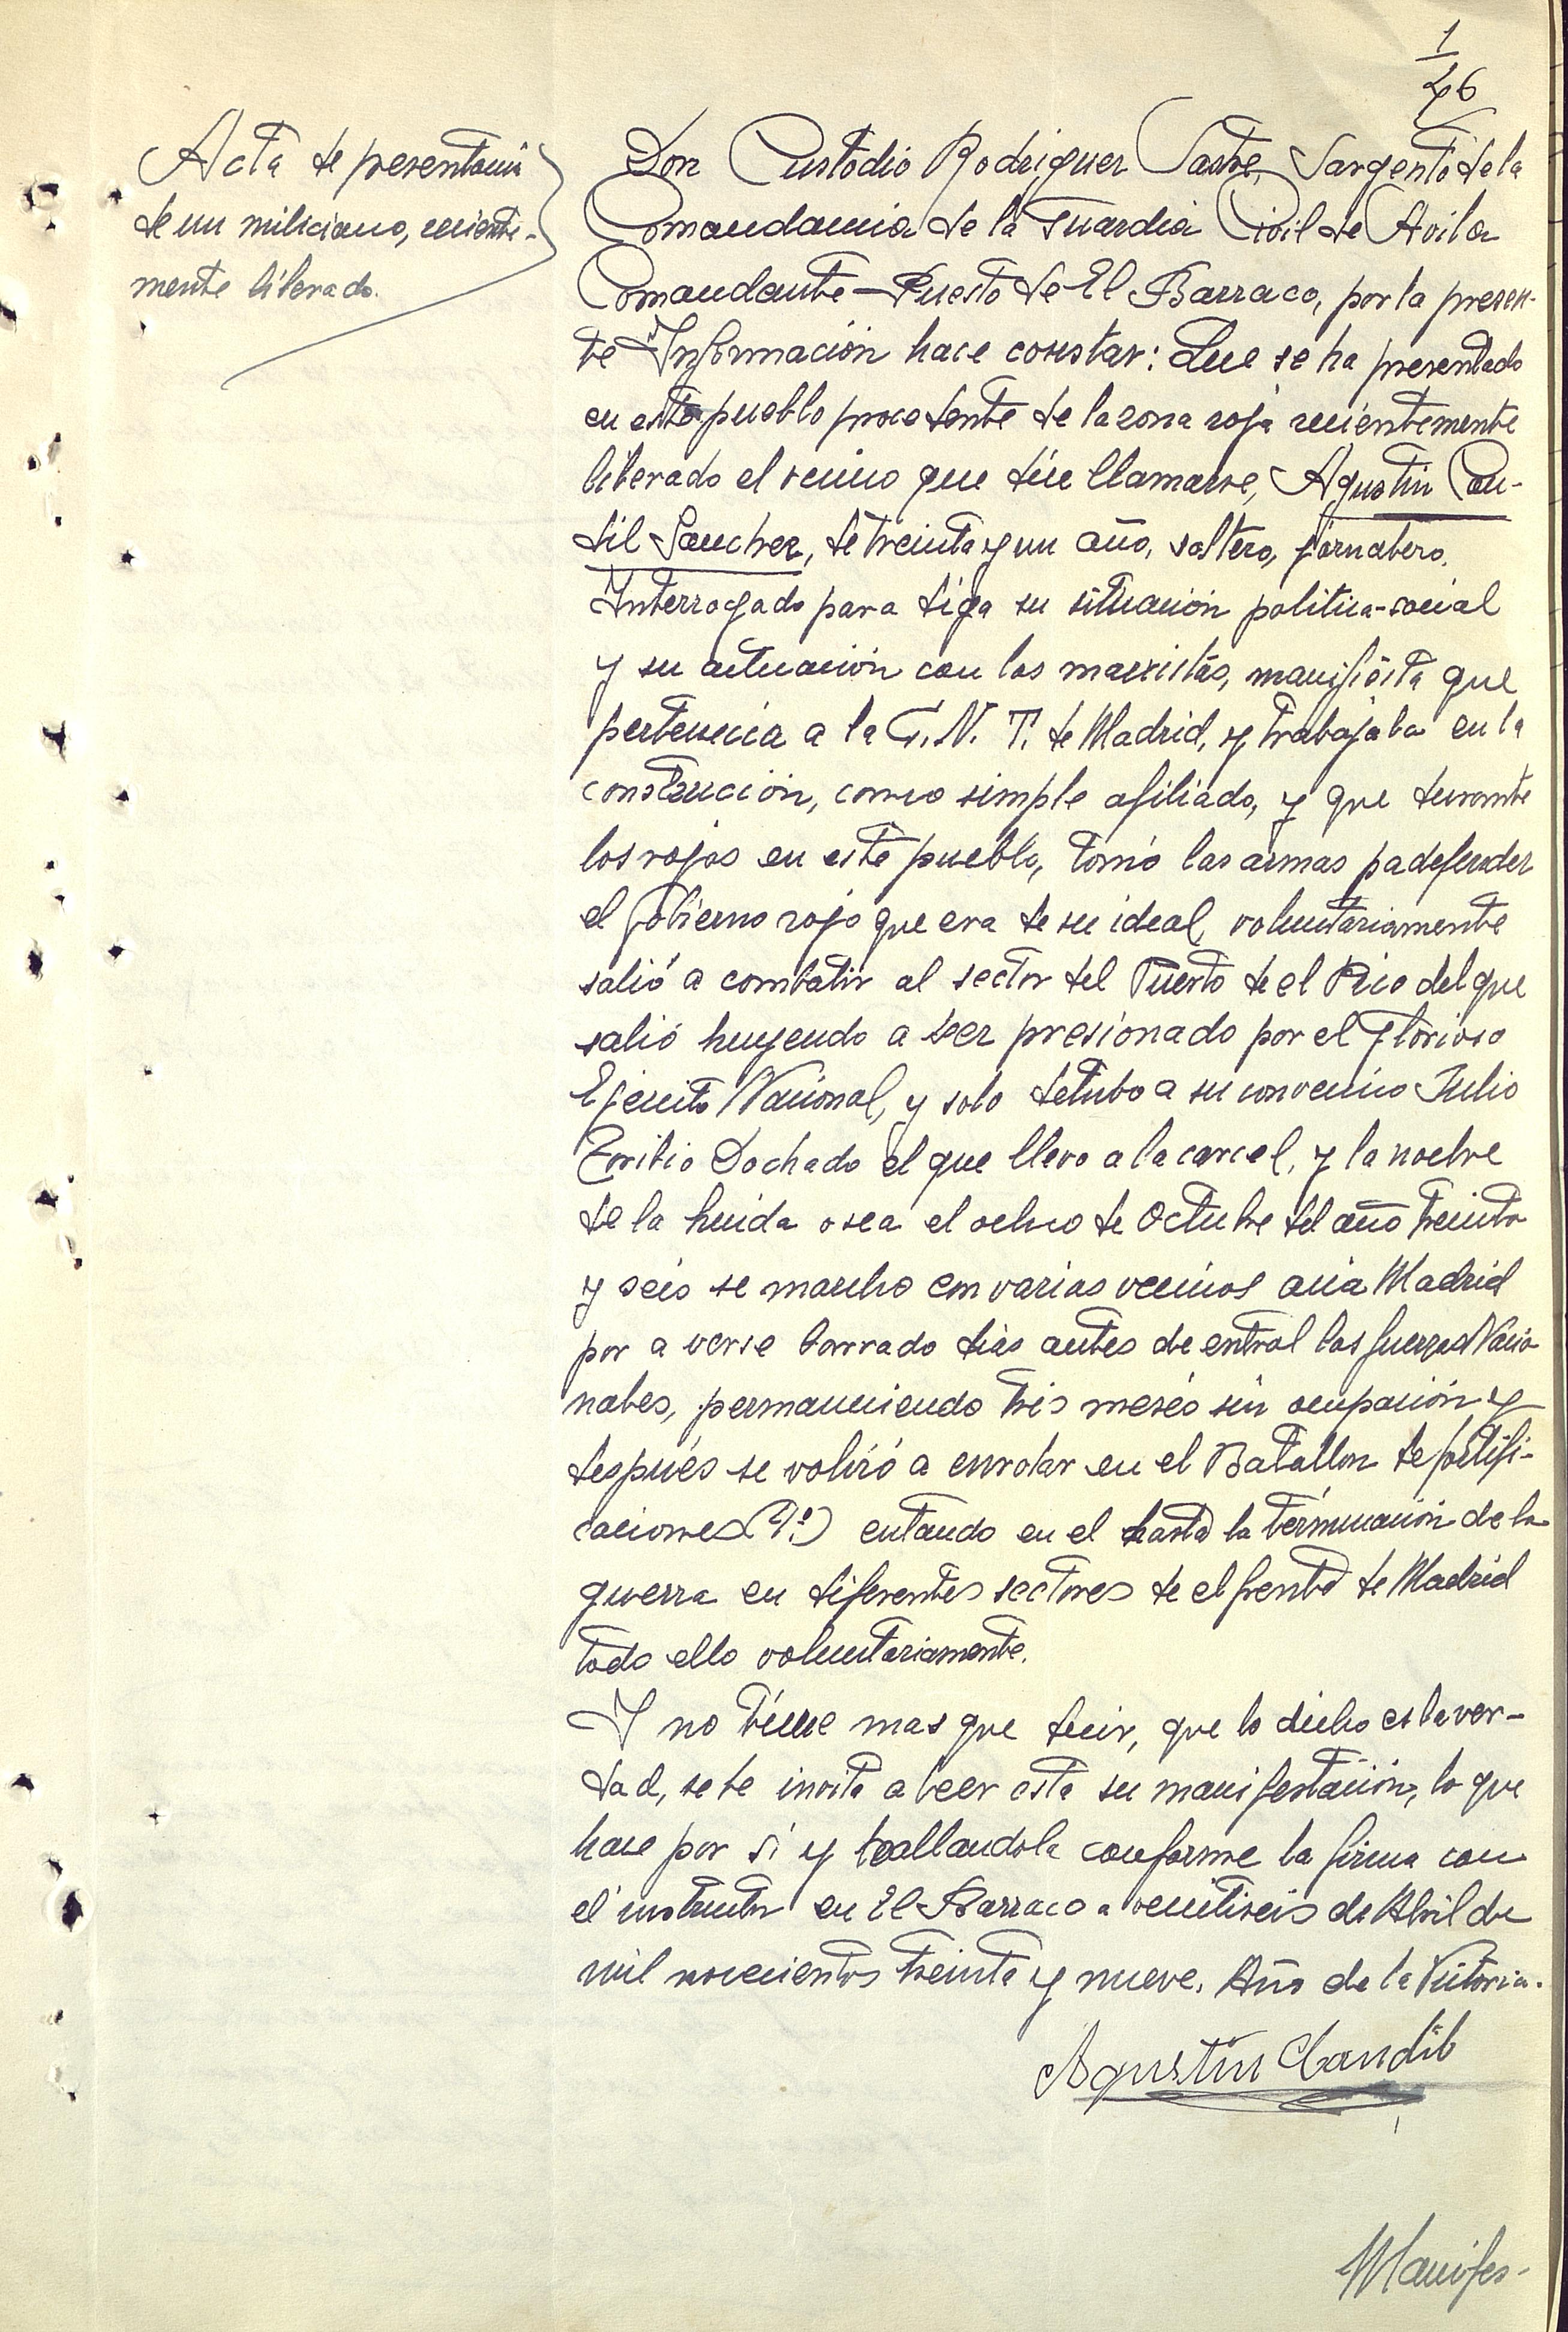 1
46
Acta de presentación
de un miliciano, reciente-
mente liberado.
Don Custodio Rodriguez Sastre, Sargento de la
Comandancia de la Guardia Civil de Avila
Comandante-Puesto de El Barraco, por la presen-
te Información hace constar: Que se ha presentado
en este pueblo procedente de la zona roja recientemente
liberado el vecino que dice llamarse, Agustin Can-
dil Sanchez, de treinta y un año, soltero, jornalero.
Interrogado para diga su situación politica-social
y su actuación con los marxistas, manifiesta que
pertenecia a la C.N.T. de Madrid, y trabajaba en la
construcción, como simple afiliado, y que durante
los rojos en este pueblo, tomó las armas pa defender
el gobierno rojo que era de su ideal, voluntariamente
salió a combatir al sector del Puerto de el Pico del que
salió huyendo a ser presionado por el Glorioso
Ejercito Nacional, y solo detubo a su convecino Julio
el que llevo a la carcel, y la noche
de la huida osea el ocho de Octubre del año treinta
y seis se marcho con varios vecinos acia Madrid
por a verse borrado dias antes de entral las fuerzas Nacio-
nales, permaneciendo tres meses sin ocupación y
después se volvió a enrolar en el Batallon de fortifi-
caciones estando en el hasta la términación de la
guerra en diferentes sectores de el frente de Madrid
todo ello voluntariamente.
Y no tiene mas que decir, que lo dicho es la ver-
dad, se le invita a leer esta su manifestación, lo que
hace por si y hallandola conforme la firma con
el instructor en El Barraco a veintiseis de Abril de
mil novecientos treinta y nueve. Año de la Victoria.
Agustin Candil
Manifes-